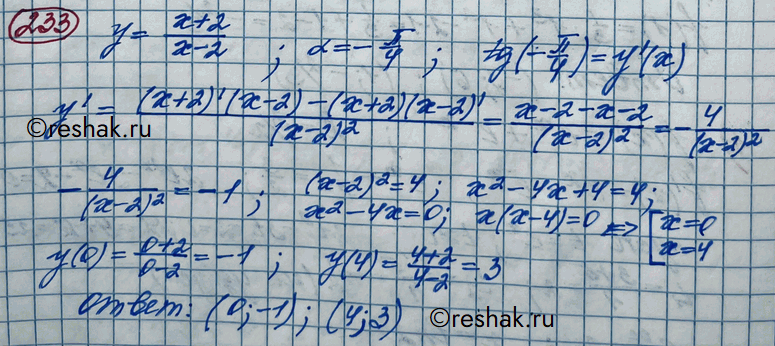 233 y = (x+2)/(x-2) ; α = -π/4 ; tg(-π/4) = y'(x)
y' = ((x+2)'(x-2) - (x+2)(x-2)')/(x-2)² = (x-2-x-2)/(x-2)² = -4/(x-2)²
©reshak.ru
-4/(x-2)² = -1 ; (x-2)² = 4 ; x² - 4x + 4 = 4 ;
x² - 4x = 0 ; x(x-4) = 0 <=> [x = 0
x = 4
y(0) = (0+2)/(0-2) = -1 ; y(4) = (4+2)/(4-2) = 3
Ответ: (0; -1) ; (4; 3)
©reshak.ru